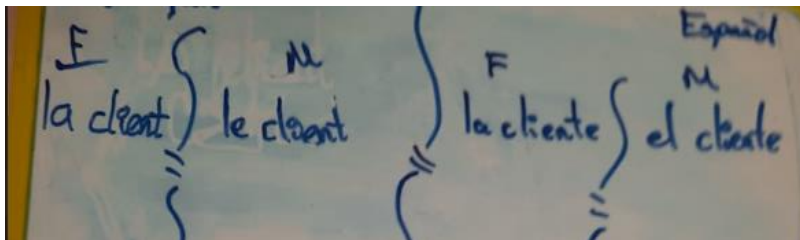 Español
F M F M
la client le client la cliente el cliente